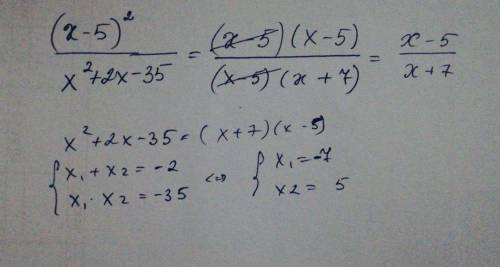 (x-5)² / x²+2x-35 = (x-5)(x-5) / (x-5)(x+7) = x-5 / x+7
x²+2x-35=(x+7)(x-5)
{ x₁+x₂=-2 <=> { x₁=-7
x₁·x₂=-35 x2= 5